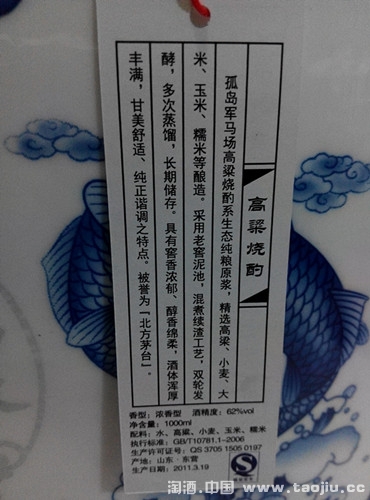 高粱烧酌
孤岛军马场高粱烧酌系生态纯粮原浆，精选高粱、小麦、大
米、玉米、糯米等酿造。采用老窖泥池，混煮续渣工艺，双轮发
酵，多次蒸馏，长期储存。具有窖香浓郁、醇香绵柔，酒体浑厚
丰满，甘美舒适、纯正谐调之特点。被誉为“北方茅台”.
香型：浓香型 酒精度：62%vol
净含量：1000ml
配料：水、高粱、小麦、玉米、糯米
执行标准：GB/T10781.1-2006
生产许可证号：QS 3705 1505 0197
产地：山东·东营
生产日期：2011.3.19
淘酒.中国 www.taojiu.cc